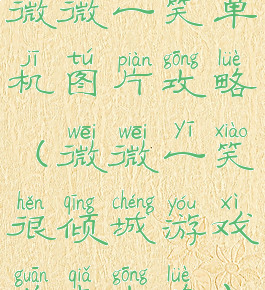 微微一笑单
jī tú piàn gōng lüè
机图片攻略
wēi wēi yī xiào
(微微一笑
hěn qīng chéng yóu xì
很倾城游戏
guān qiǎ gōng lüè